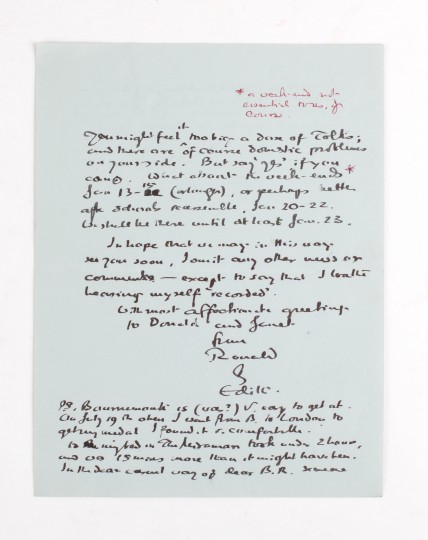 * a week-end not
essential
course.
it
You might feel too big a dose of Tolks;
and there are of course domestic problems
on your side. But say 'yes' if you
can. What about the week-ends *
Jan 13-15, or perhaps better
after schools reassemble, Jan 20-22.
We shall be there until at least Jan. 23.
In hope that we may in this way
see you soon, I omit any other news or
comments — except to say that I loathe
hearing myself 'recorded'.
With most affectionate greetings
to Donald and Janet
from
Ronald
&
Edith.
PS. Bournemouth is (was?) v. easy to get at.
On July 19 when I went from B. to London to
get my medal I found it v. comfortable.
and was 15 mins more than it might have been.
In the dear casual way of dear B.R. someone